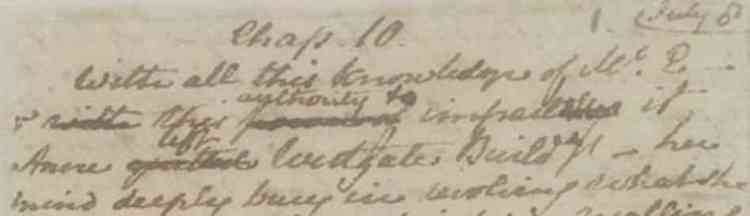 1. July 8
Chap. 10.
With all this knowledge of Mr. E –
& with this authority to impart it,
Anne left Westgate Buildgs – her
mind deeply busy in revolving what she